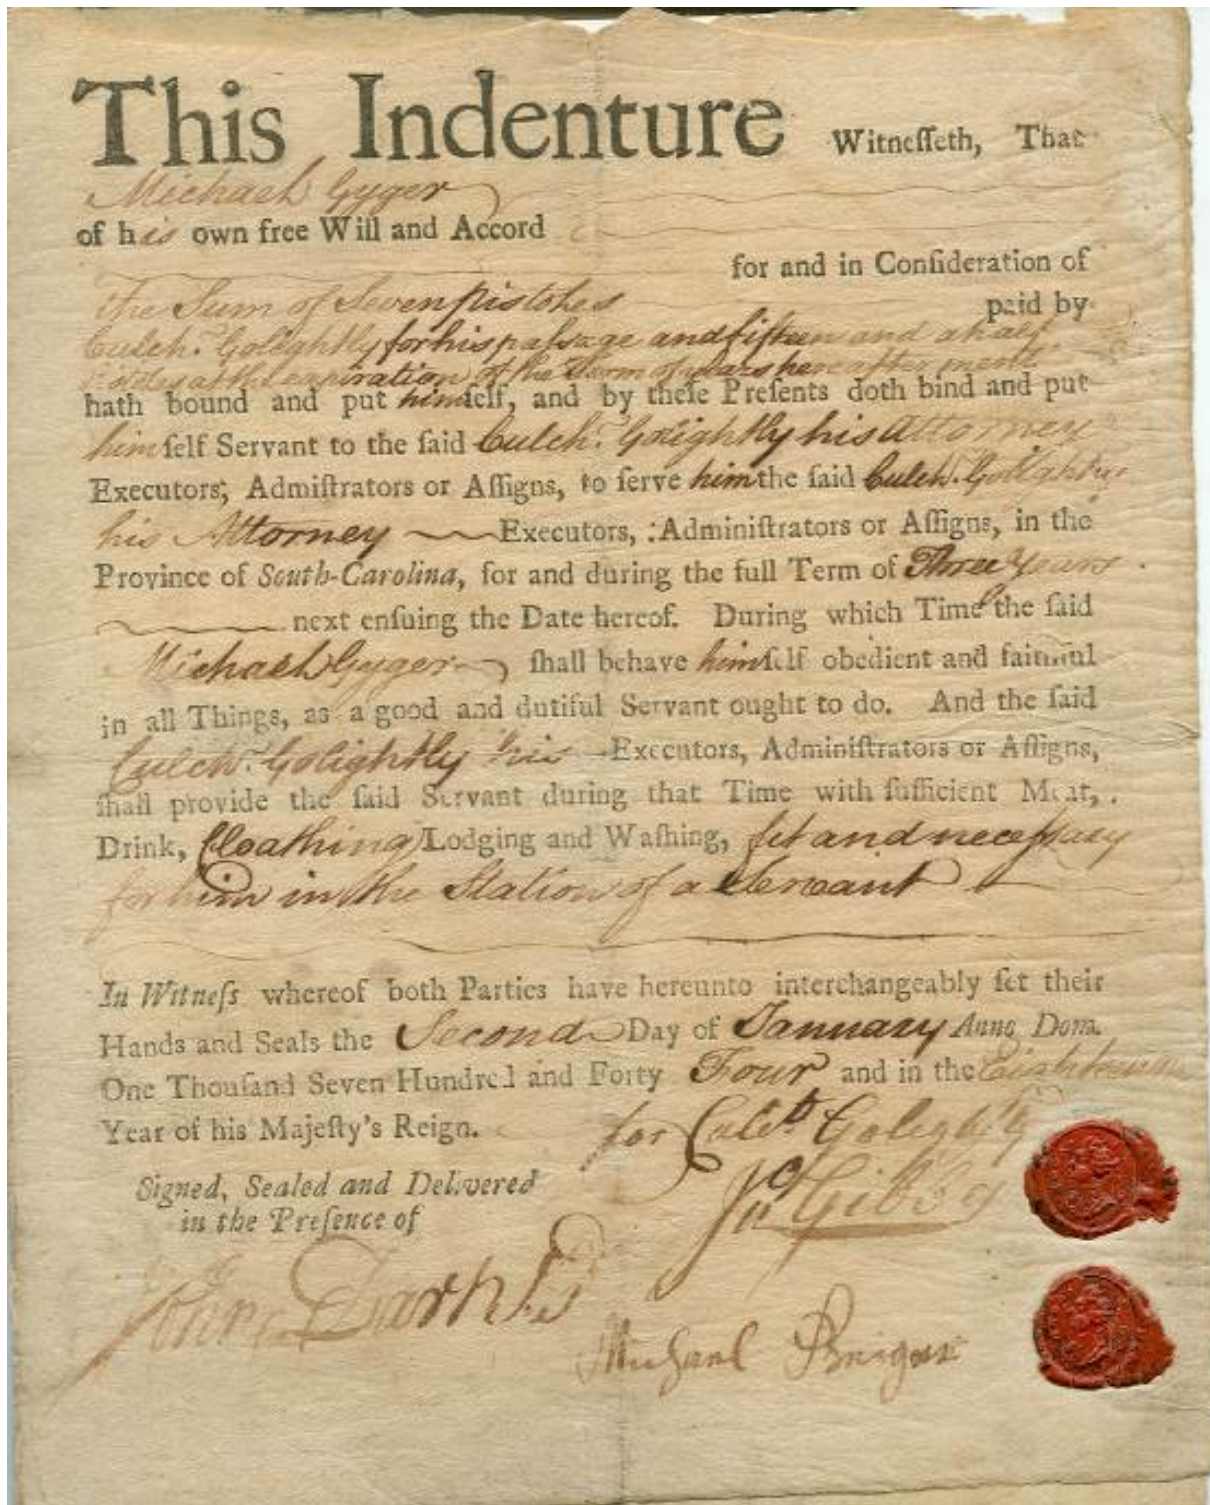 This Indenture Witneſſeth, That
Michael Gyger
of his own free Will and Accord
for and in Conſideration of
The Sum of Seven pistoles
paid by
Culch.r Golightly for his paſsage and fifteen and a half
at the expiration of the Term of years hereafter ment.
hath bound and put himſelf, and by theſe Preſents doth bind and put
himſelf Servant to the ſaid Culch.r Golightly his Attorney
Executors, Admiſtrators or Aſſigns, to ſerve him the ſaid Culch. Golightly
his Attorney Executors, Adminiſtrators or Aſſigns, in the
Province of South-Carolina, for and during the full Term of Three Years
next enſuing the Date hereof. During which Time the ſaid
Michael Gyger ſhall behave himſelf obedient and faithful
in all Things, as a good and dutiful Servant ought to do. And the ſaid
Culch.r Golightly his Executors, Adminiſtrators or Aſſigns,
ſhall provide the ſaid Servant during that Time with ſufficient Meat,
Drink, Cloathing Lodging and Waſhing, fit and neceſsary
for him in the Station of a Servant
In Witneſs whereof both Parties have hereunto interchangeably ſet their
Hands and Seals the Second Day of January Anno Dom.
One Thouſand Seven Hundred and Forty Four and in the Eighteenth
Year of his Majeſty's Reign.
for Culch.r Golightly
Signed, Sealed and Delivered
Jn.o Gibbs
in the Preſence of
John
Michael